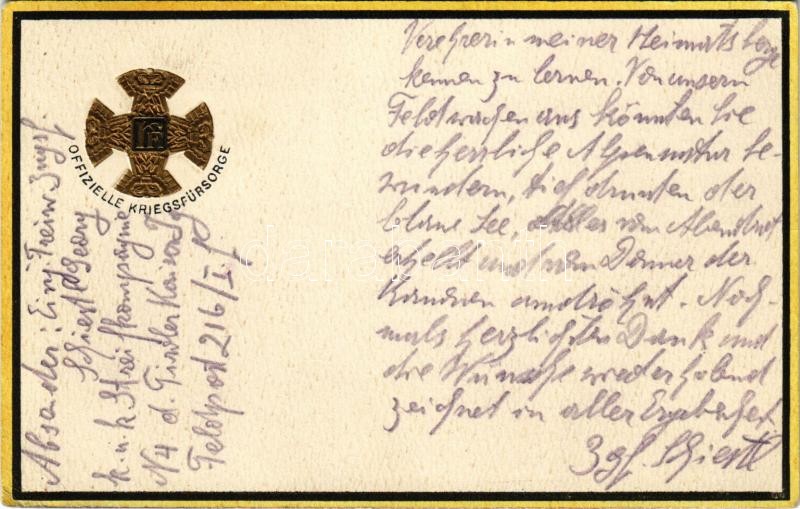 OFFIZIELLE KRIEGSFÜRSORGE
Absender: Einj. Freiw. Zugsf.
Schiestl Georg
k. u. k. Streifkompagnie
N 4 d. Tiroler Kaiserjg
Feldpost 216/I
Verehrerin meiner Heimatsberge
kennen zu lernen. Von unsern
Feldwachen aus könnten Sie
die herrliche Alpennatur be-
wundern, tief drunten der
blaue See, alles vom Abendrot
erhellt und vom Donner der
Kanonen umdröhnt. Noch-
mals herzlichsten Dank und
die Wünsche wiederholend
zeichnet in aller Ergebenheit
Zgf. Schiestl
darabanth